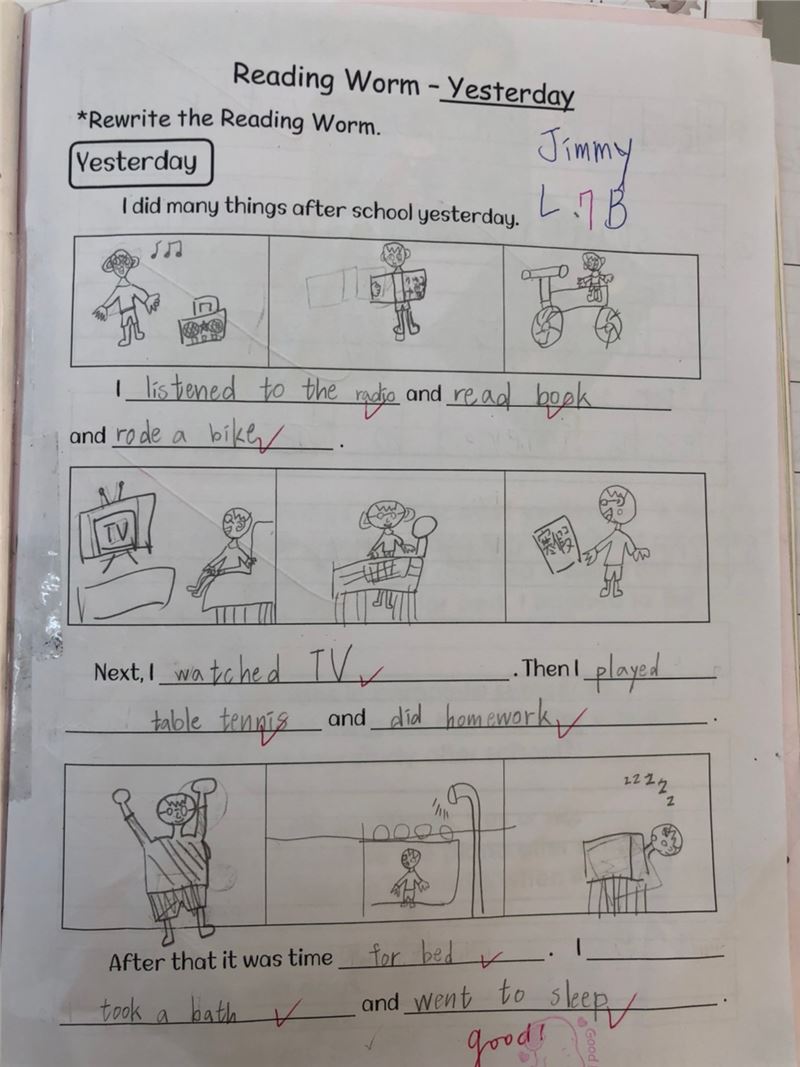 Reading Worm - Yesterday
*Rewrite the Reading Worm.
Jimmy
Yesterday
L.7B
I did many things after school yesterday.
I listened to the radio and read book
and rode a bike.
TV
寒假
Next, I watched TV. Then I played
table tennis and did homework.
zzzzz
After that it was time for bed. I
took a bath and went to sleep.
good!
Good